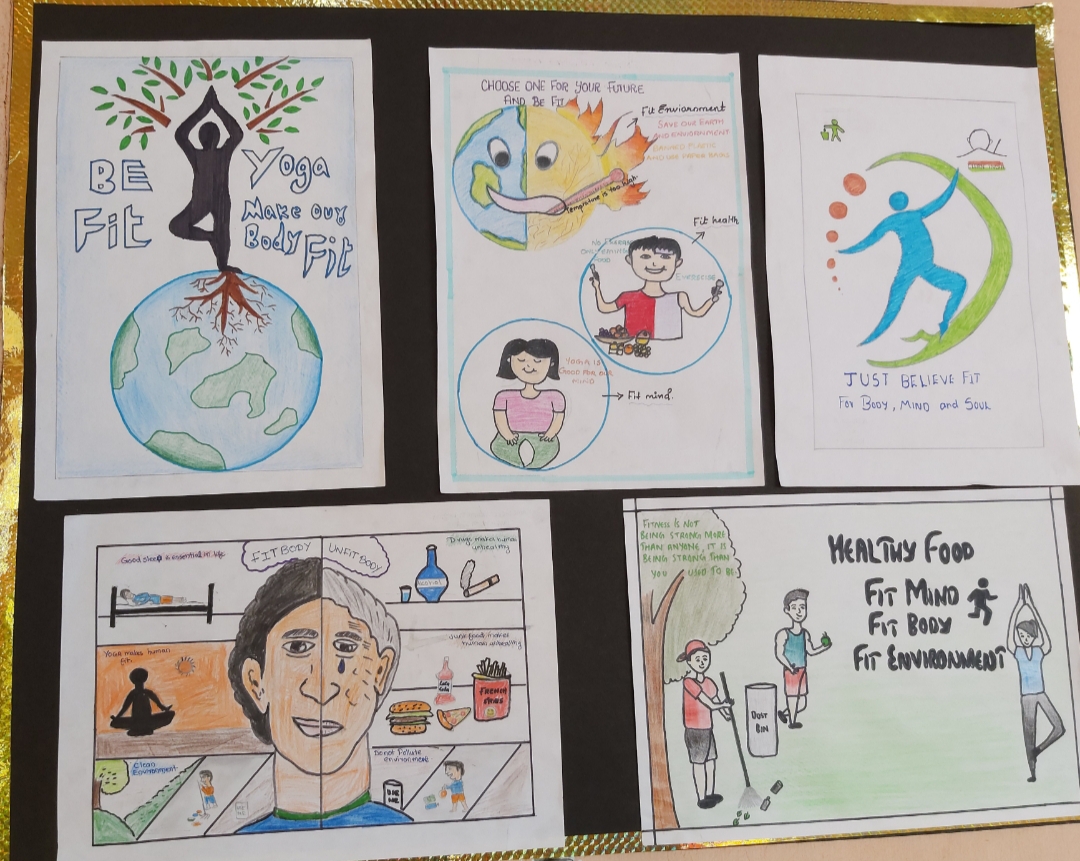 BE
Fit
Yoga
Make our
Body
Fit
CHOOSE ONE FOR YOUR FUTURE
AND BE FIT
Fit Enviornment
SAVE OUR EARTH
AND ENVIRONMENT
BANNED PLASTIC
AND USE PAPER BAGS
Temprature is too high
Fit health
EXERCISE
YOGA IS
GOOD FOR OUR
MIND
Fit mind.
JUST BELIEVE FIT
FOR BODY, MIND and SOUL
Good sleep is essential in life
FIT BODY
UNFIT BODY
Drugs makes human
unhealthy
Yoga makes human
fit
Junk food makes
human unhealthy
Coca
Cola
FRENCH
FRIES
Clean
Environment
Do not Pollute
environment
USE
ME
USE
ME
FITNESS IS NOT
BEING STRONG MORE
THAN ANYONE, IT IS
BEING STRONG THAN
YOU USED TO BE
HEALTHY FOOD
FIT MIND
FIT BODY
FIT ENVIRONMENT
DUST
BIN